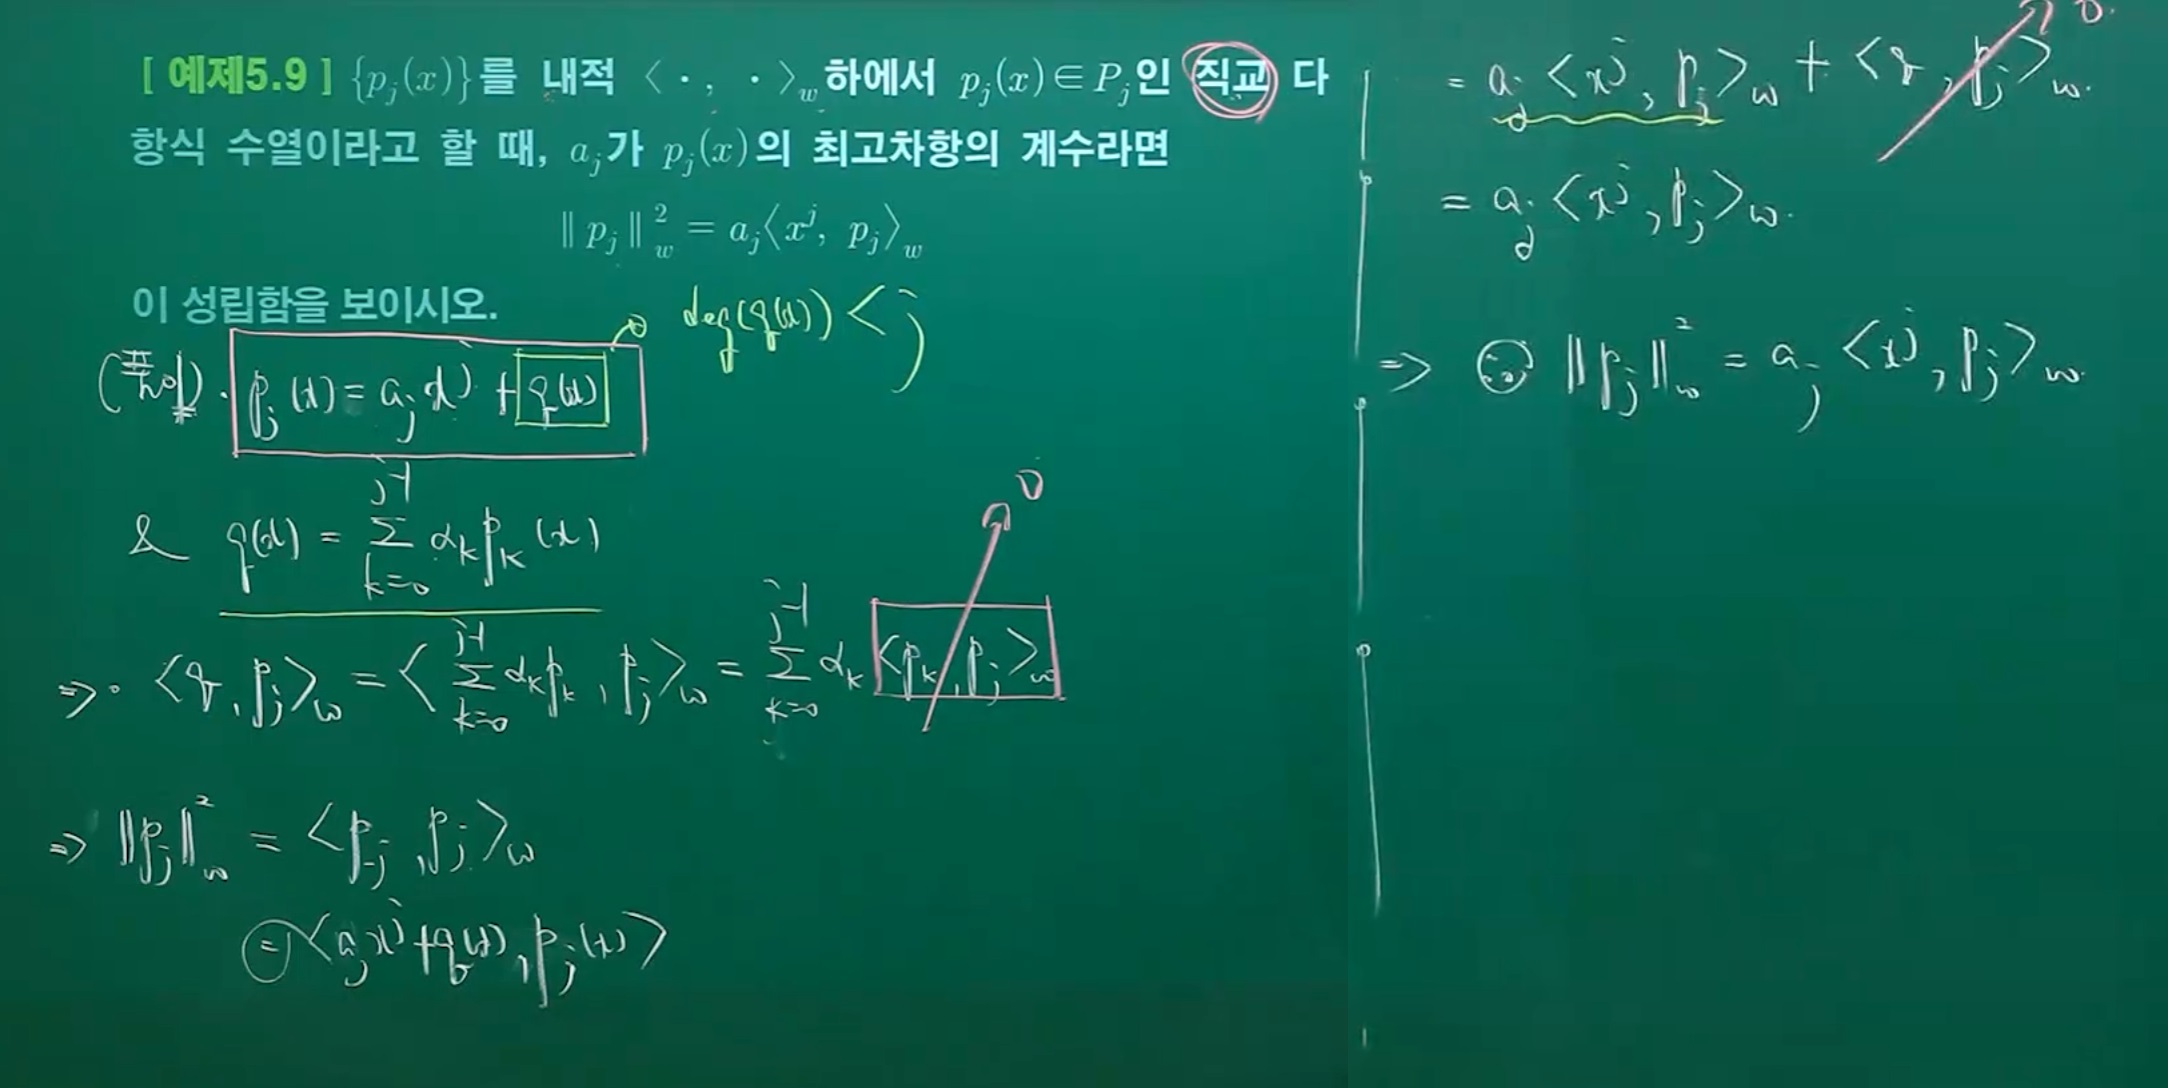 [ 예제5.9 ] {p_j(x)}를 내적 ⟨ · , · ⟩_w 하에서 p_j(x) ∈ P_j인 직교 다
항식 수열이라고 할 때, a_j가 p_j(x)의 최고차항의 계수라면
‖ p_j ‖_w^2 = a_j⟨x^j, p_j⟩_w
이 성립함을 보이시오.
deg(q(x)) < j
(풀이) · p_j(x) = a_j x^j + q(x)
& q(x) = Σ_{k=0}^{j-1} α_k p_k(x)
0
⇒ · ⟨q, p_j⟩_w = ⟨Σ_{k=0}^{j-1} α_k p_k, p_j⟩_w = Σ_{k=0}^{j-1} α_k ⟨p_k, p_j⟩_w
⇒ ‖p_j‖_w^2 = ⟨p_j, p_j⟩_w
= ⟨a_j x^j + q(x), p_j(x)⟩
0.
= a_j ⟨x^j, p_j⟩_w + ⟨q, p_j⟩_w.
= a_j ⟨x^j, p_j⟩_w.
⇒ ∴ ‖p_j‖_w^2 = a_j ⟨x^j, p_j⟩_w.